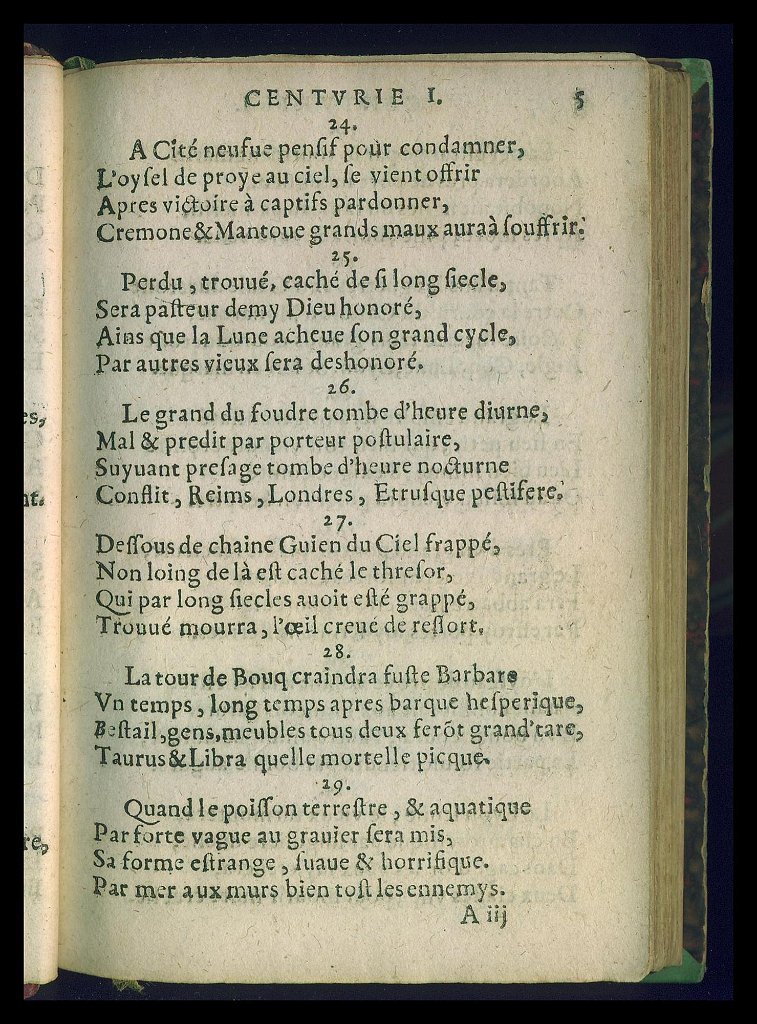 CENTVRIE I. 5
24.
A Cité neufue penſif pour condamner,
L'oyſel de proye au ciel, ſe vient offrir
Apres victoire à captifs pardonner,
Cremone & Mantoue grands maux aura à ſouffrir.
25.
Perdu, trouué, caché de ſi long ſiecle,
Sera paſteur demy Dieu honoré,
Ains que la Lune acheue ſon grand cycle,
Par autres vieux ſera deshonoré.
26.
Le grand du foudre tombe d'heure diurne,
Mal & predit par porteur poſtulaire,
Suyuant preſage tombe d'heure nocturne
Conflit, Reims, Londres, Etruſque peſtifere.
27.
Deſſous de chaine Guien du Ciel frappé,
Non loing de là eſt caché le threſor,
Qui par long ſiecles auoit eſté grappé,
Trouué mourra, l'œil creué de reſſort.
28.
La tour de Bouq craindra fuſte Barbare
Vn temps, long temps apres barque heſperique,
Beſtail, gens, meubles tous deux ferõt grand'tare,
Taurus & Libra quelle mortelle picque.
29.
Quand le poiſſon terreſtre, & aquatique
Par forte vague au grauier ſera mis,
Sa forme eſtrange, ſuaue & horrifique.
Par mer aux murs bien toſt les ennemys.
A iij